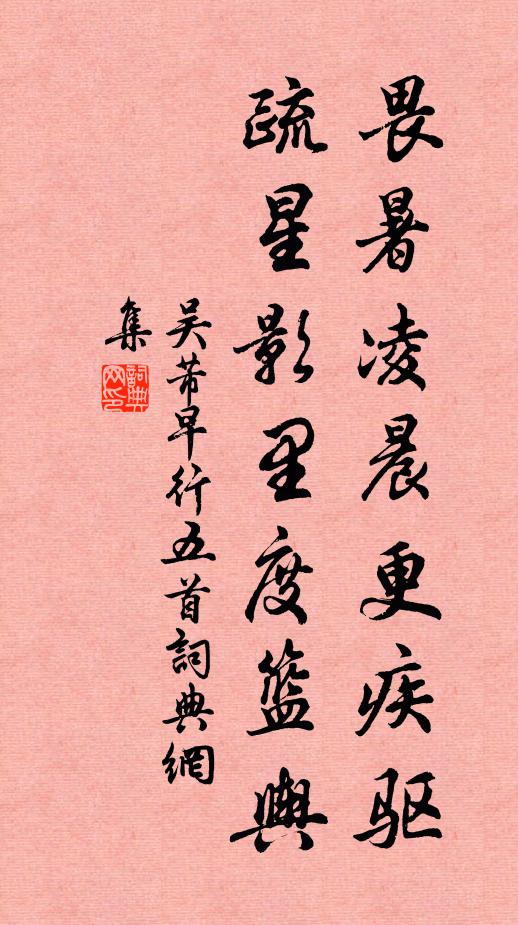 畏暑凌晨更疾驱
疏星影里度篮舆
吴芾早行五首詞典網
集
詞典网印